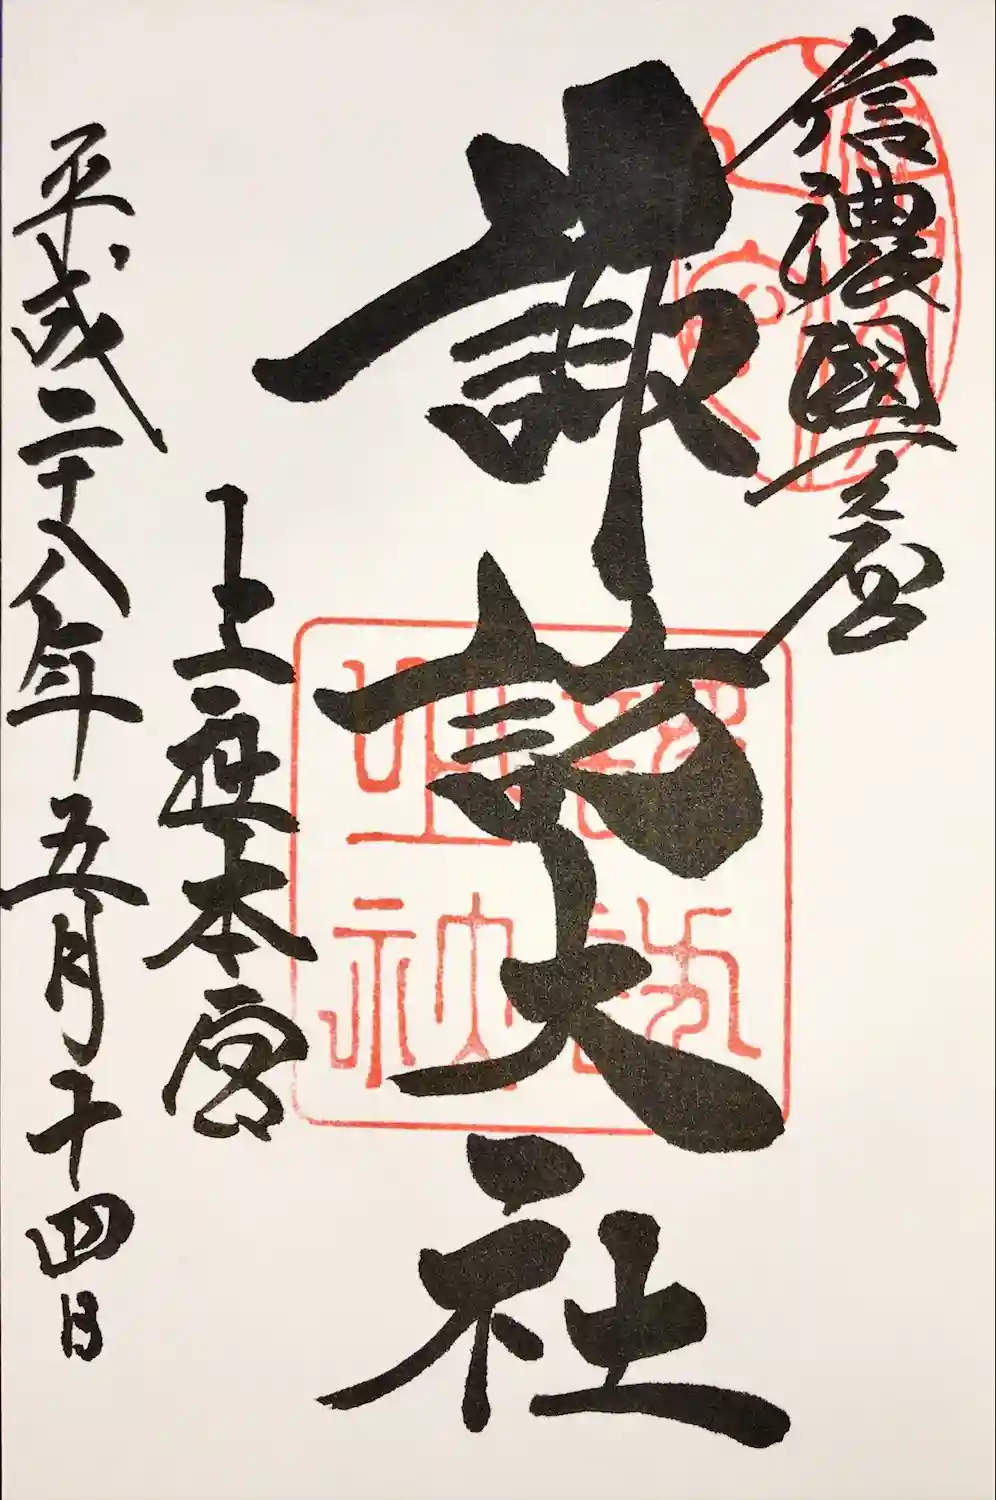 信濃國一之宮
諏訪大社
上社本宮
平成二十八年五月十四日
諏訪
大社